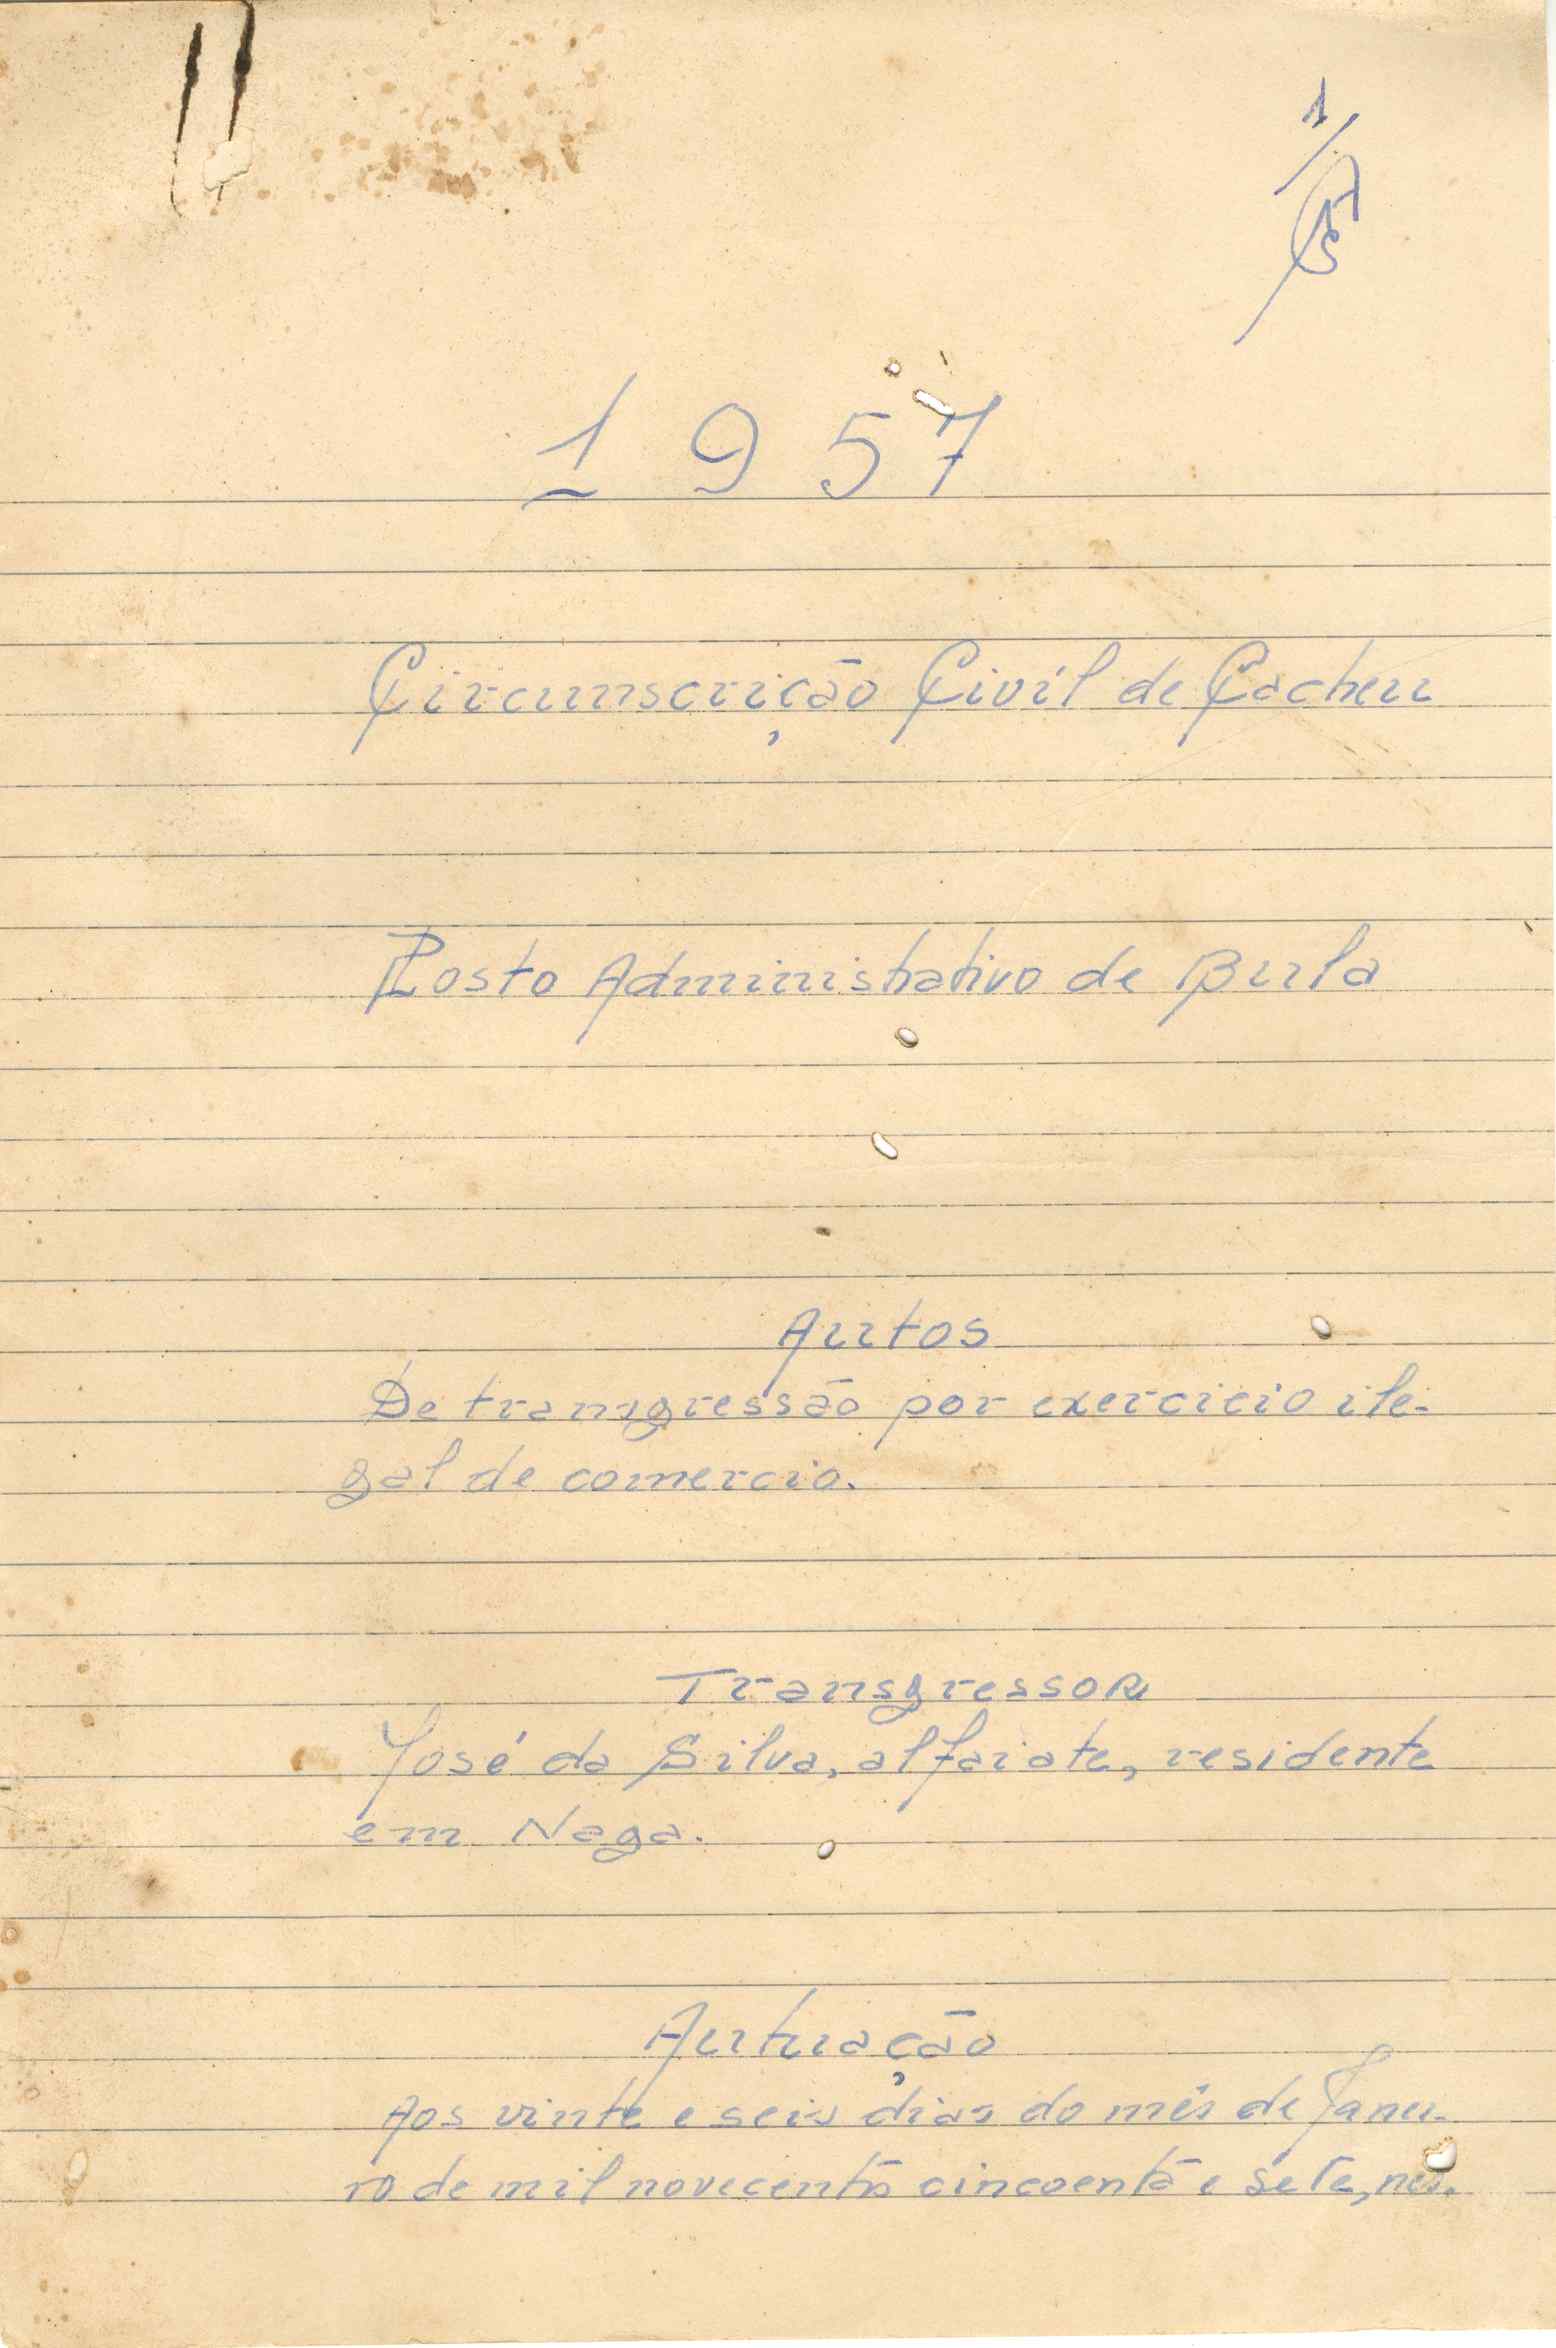 1
1957
Circunscrição Civil de Cacheu
Posto Administrativo de Bula
Autos
De transgressão por exercicio ile-
gal de comercio.
Transgressor
José da Silva, alfaiate, residente
em Naga.
Autuação
Aos vinte e seis dias do mês de Janei-
ro de mil novecentos cincoenta e sete, nes-